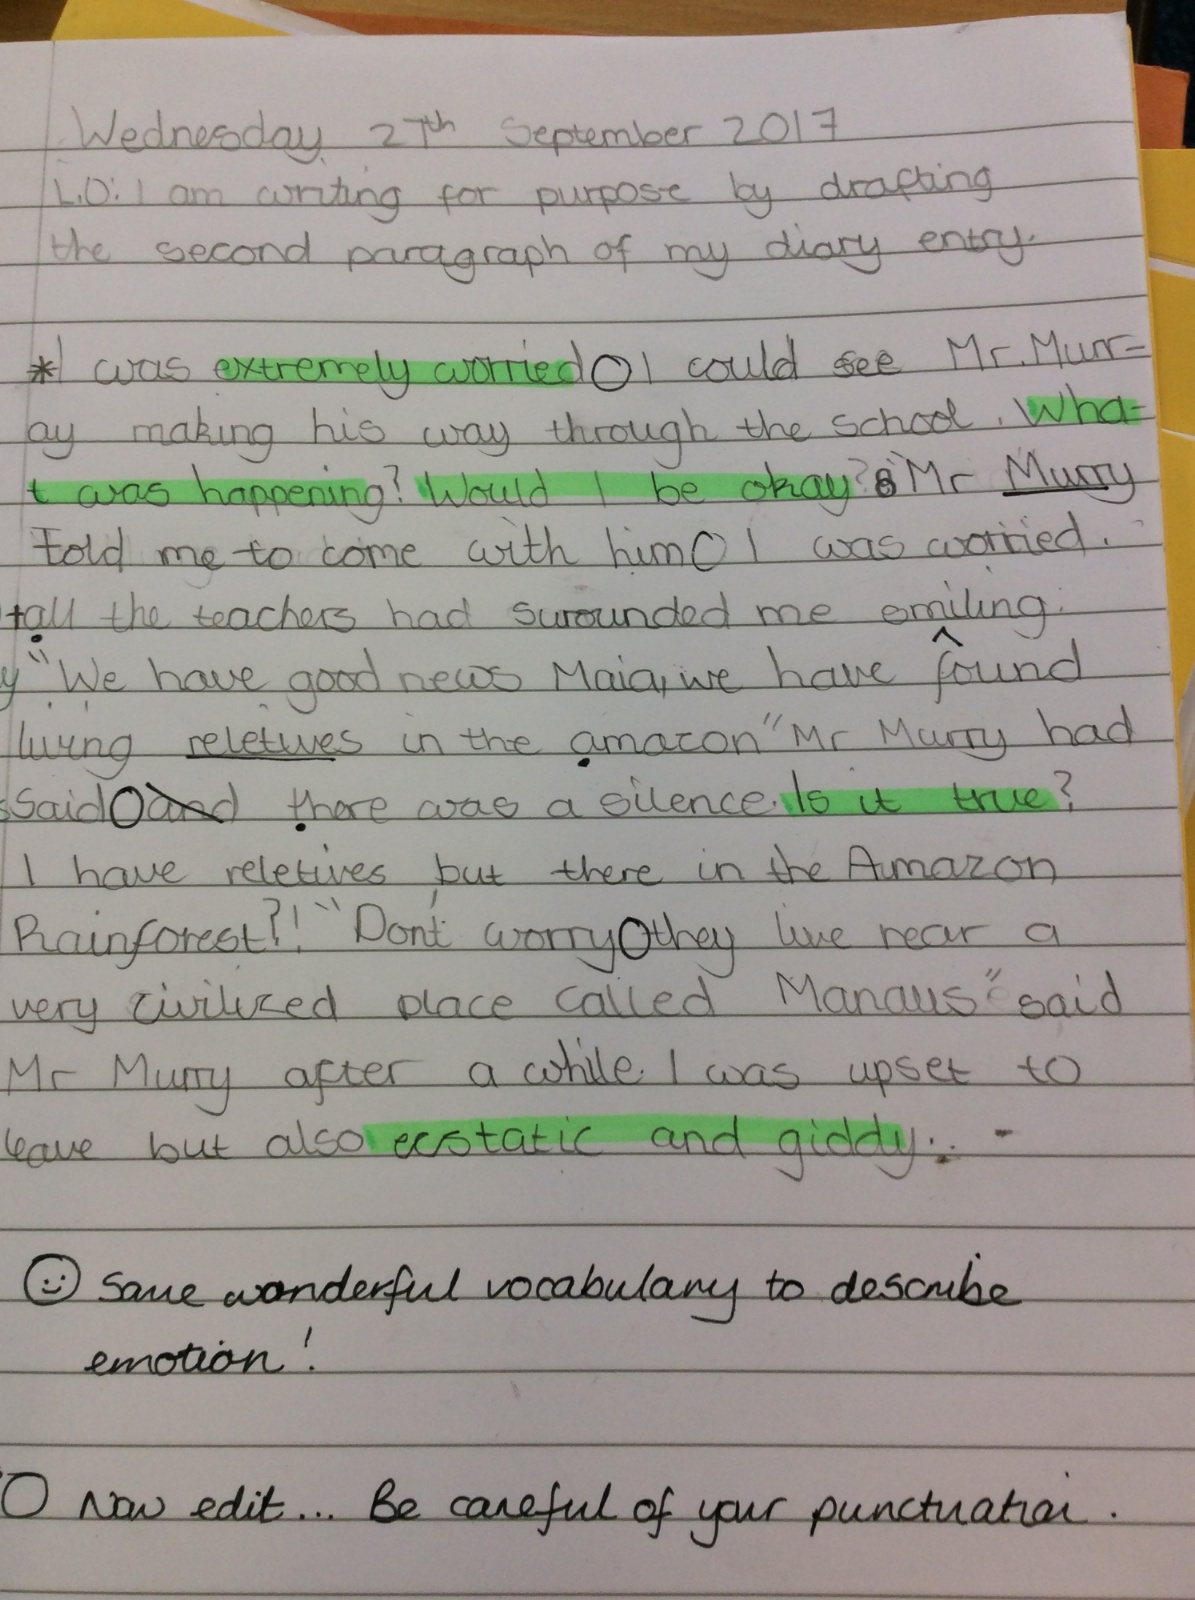 Wednesday 27th September 2017
L.O: I am writing for purpose by drafting
the second paragraph of my diary entry.
*I was extremely worried I could see Mr. Murr=
ay making his way through the school. Wha=
t was happening? Would I be okay? Mr Murry
told me to come with him I was worried.
all the teachers had surounded me smiling.
"We have good news Maia, we have found
living reletives in the amazon" Mr Murry had
said and there was a silence. Is it true?
I have reletives but there in the Amazon
Rainforest?! "Don't worry they live near a
very civilized place called Manaus" said
Mr Murry after a while. I was upset to
leave but also ecstatic and giddy..
Some wonderful vocabulary to describe
emotion!
Now edit... Be careful of your punctuation.